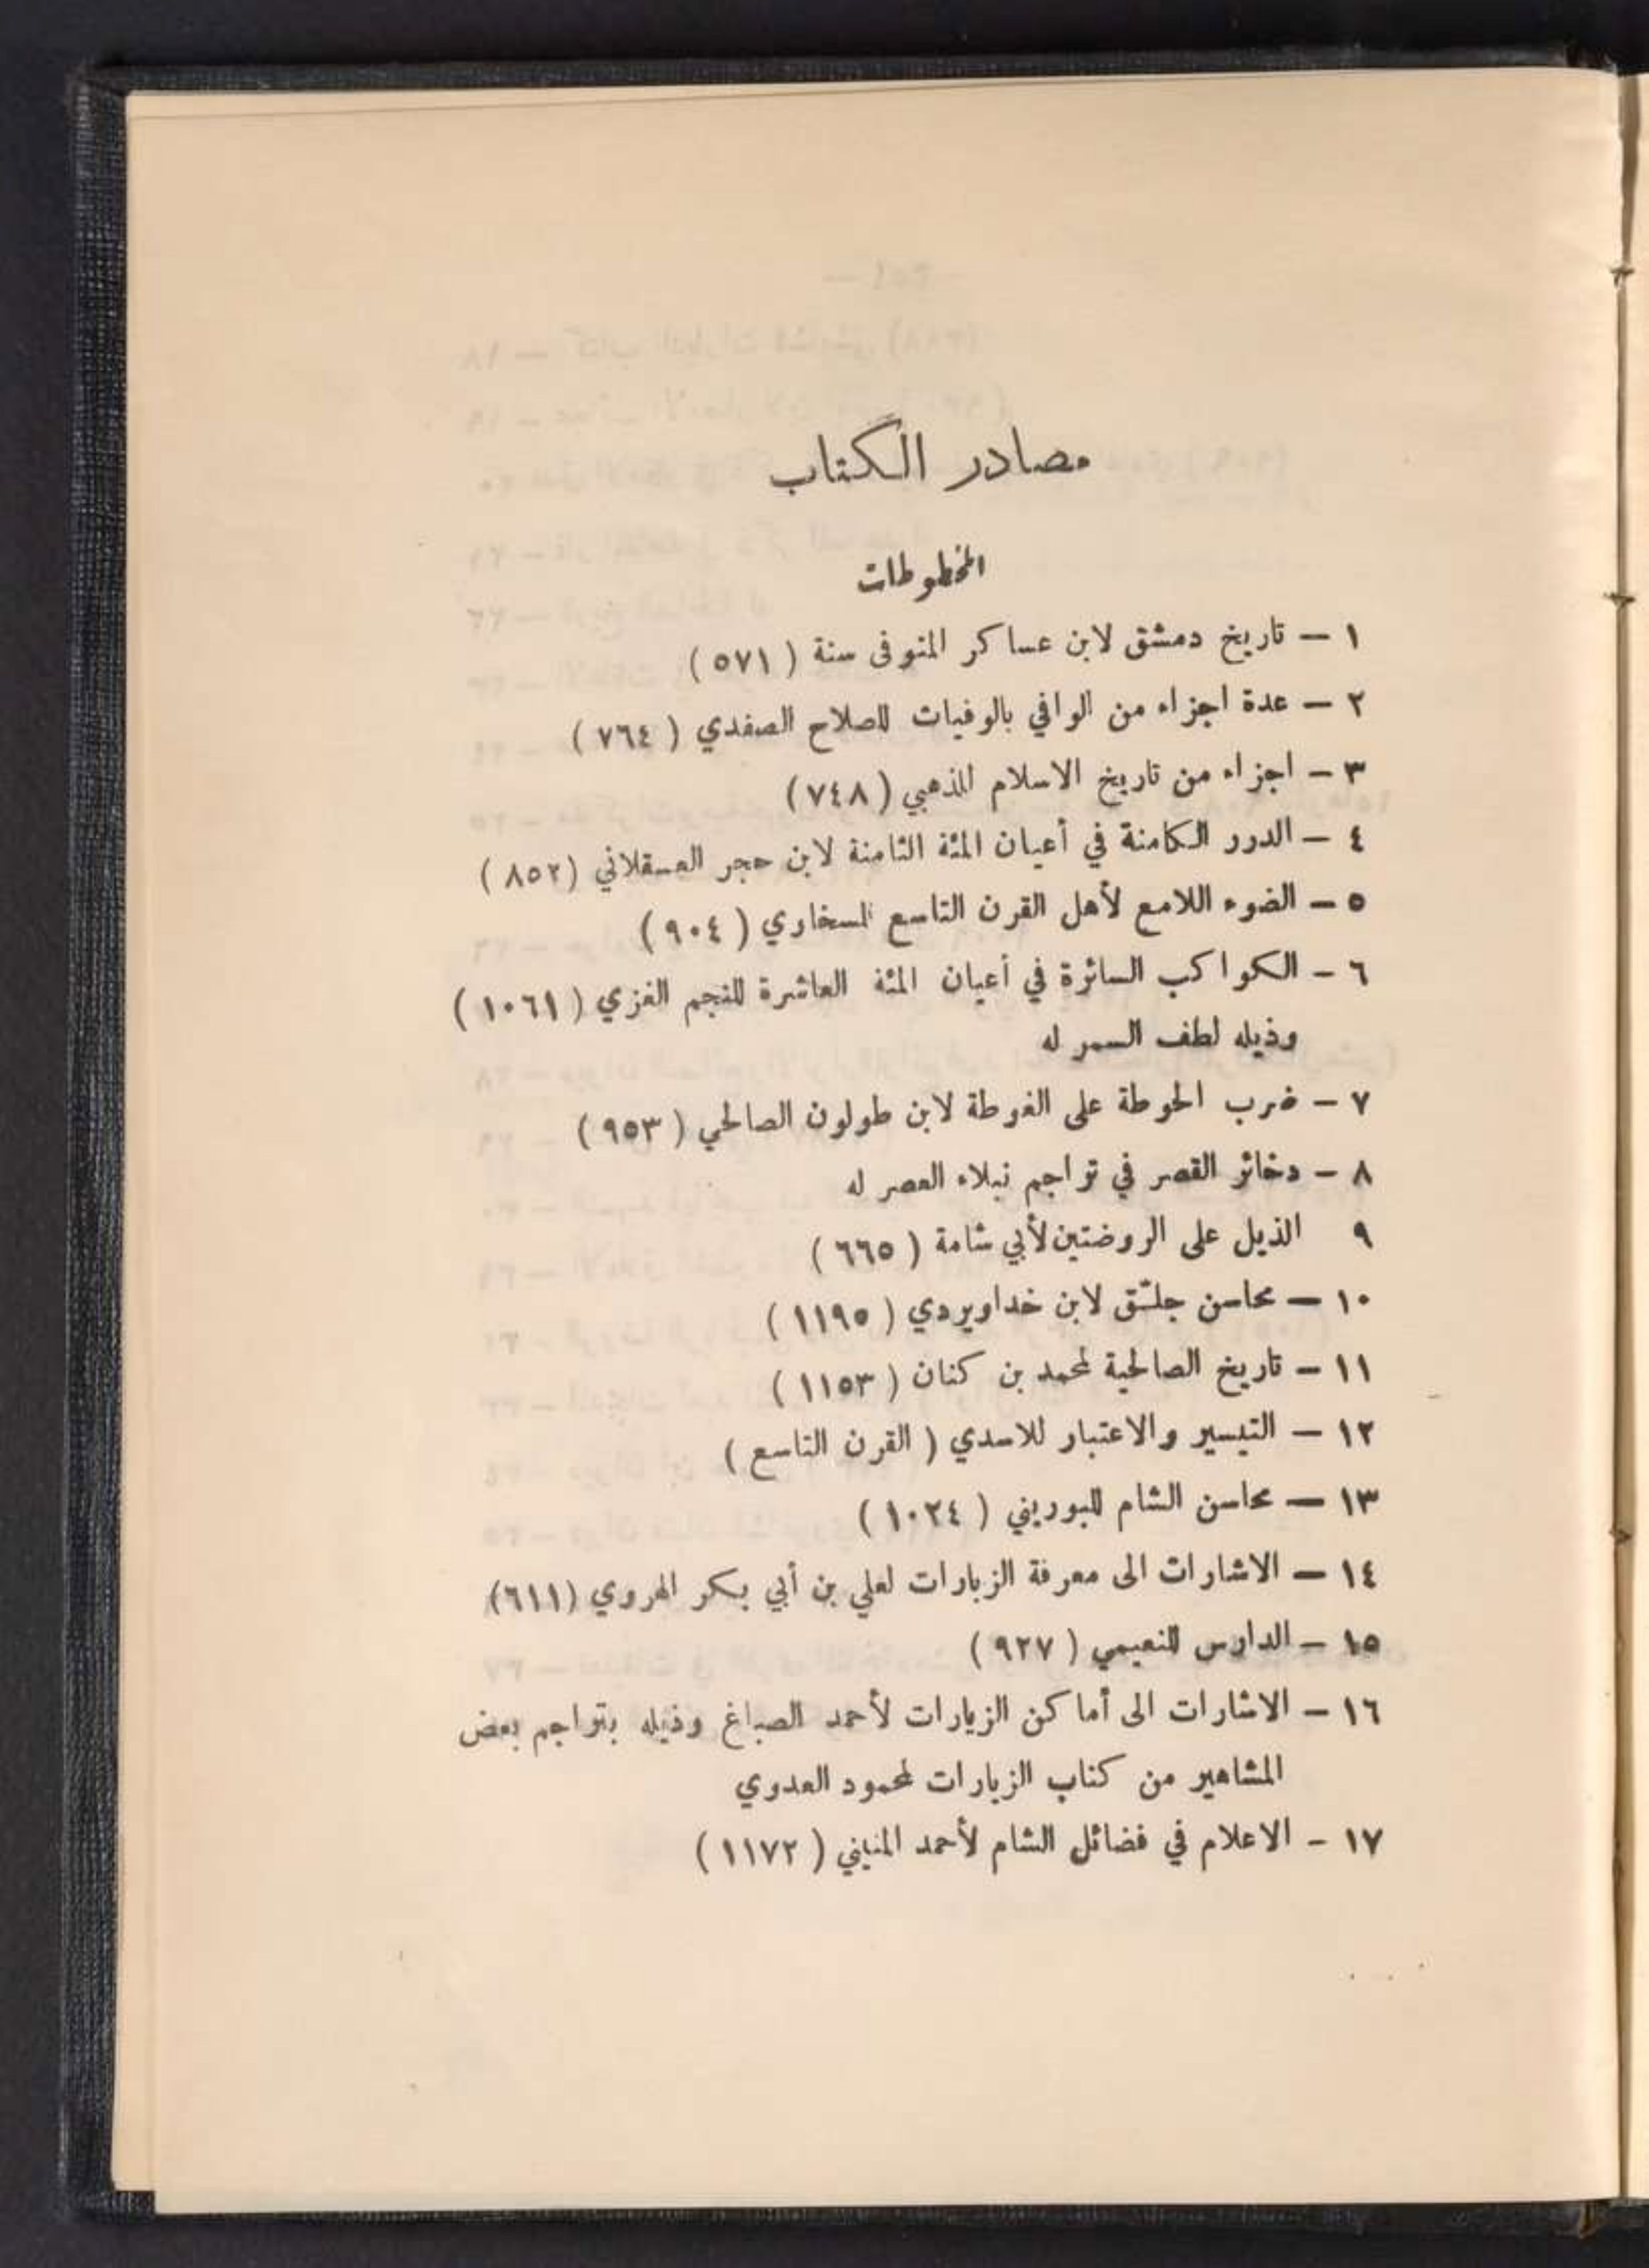 مصادر الكتاب
المخطوطات
١ — تاريخ دمشق لابن عساكر المتوفى سنة ( ٥٧١ )
٢ — عدة اجزاء من الوافي بالوفيات للصلاح الصفدي ( ٧٦٤ )
٣ — اجزاء من تاريخ الاسلام للذهبي ( ٧٤٨ )
٤ — الدرر الكامنة في أعيان المئة الثامنة لابن حجر العسقلاني ( ٨٥٢ )
٥ — الضوء اللامع لأهل القرن التاسع للسخاوي ( ٩٠٤ )
٦ — الكواكب السائرة في أعيان المئة العاشرة للنجم الغزي ( ١٠٦١ )
وذيله لطف السمر له
٧ — ضرب الحوطة على الغوطة لابن طولون الصالحي ( ٩٥٣ )
٨ — دخائر القصر في تراجم نبلاء العصر له
٩ الذيل على الروضتين لأبي شامة ( ٦٦٥ )
١٠ — محاسن جلّق لابن خداويردي ( ١١٩٥ )
١١ — تاريخ الصالحية لمحمد بن كنان ( ١١٥٣ )
١٢ — التيسير والاعتبار للاسدي ( القرن التاسع )
١٣ — محاسن الشام للبوريني ( ١٠٢٤ )
١٤ — الاشارات الى معرفة الزيارات لعلي بن أبي بكر الهروي ( ٦١١ )
١٥ — الدارس للنعيمي ( ٩٢٧ )
١٦ — الاشارات الى أماكن الزيارات لأحمد الصباغ وذيله بتراجم بعض
المشاهير من كتاب الزيارات لمحمود العدوي
١٧ — الاعلام في فضائل الشام لأحمد المنيني ( ١١٧٢ )